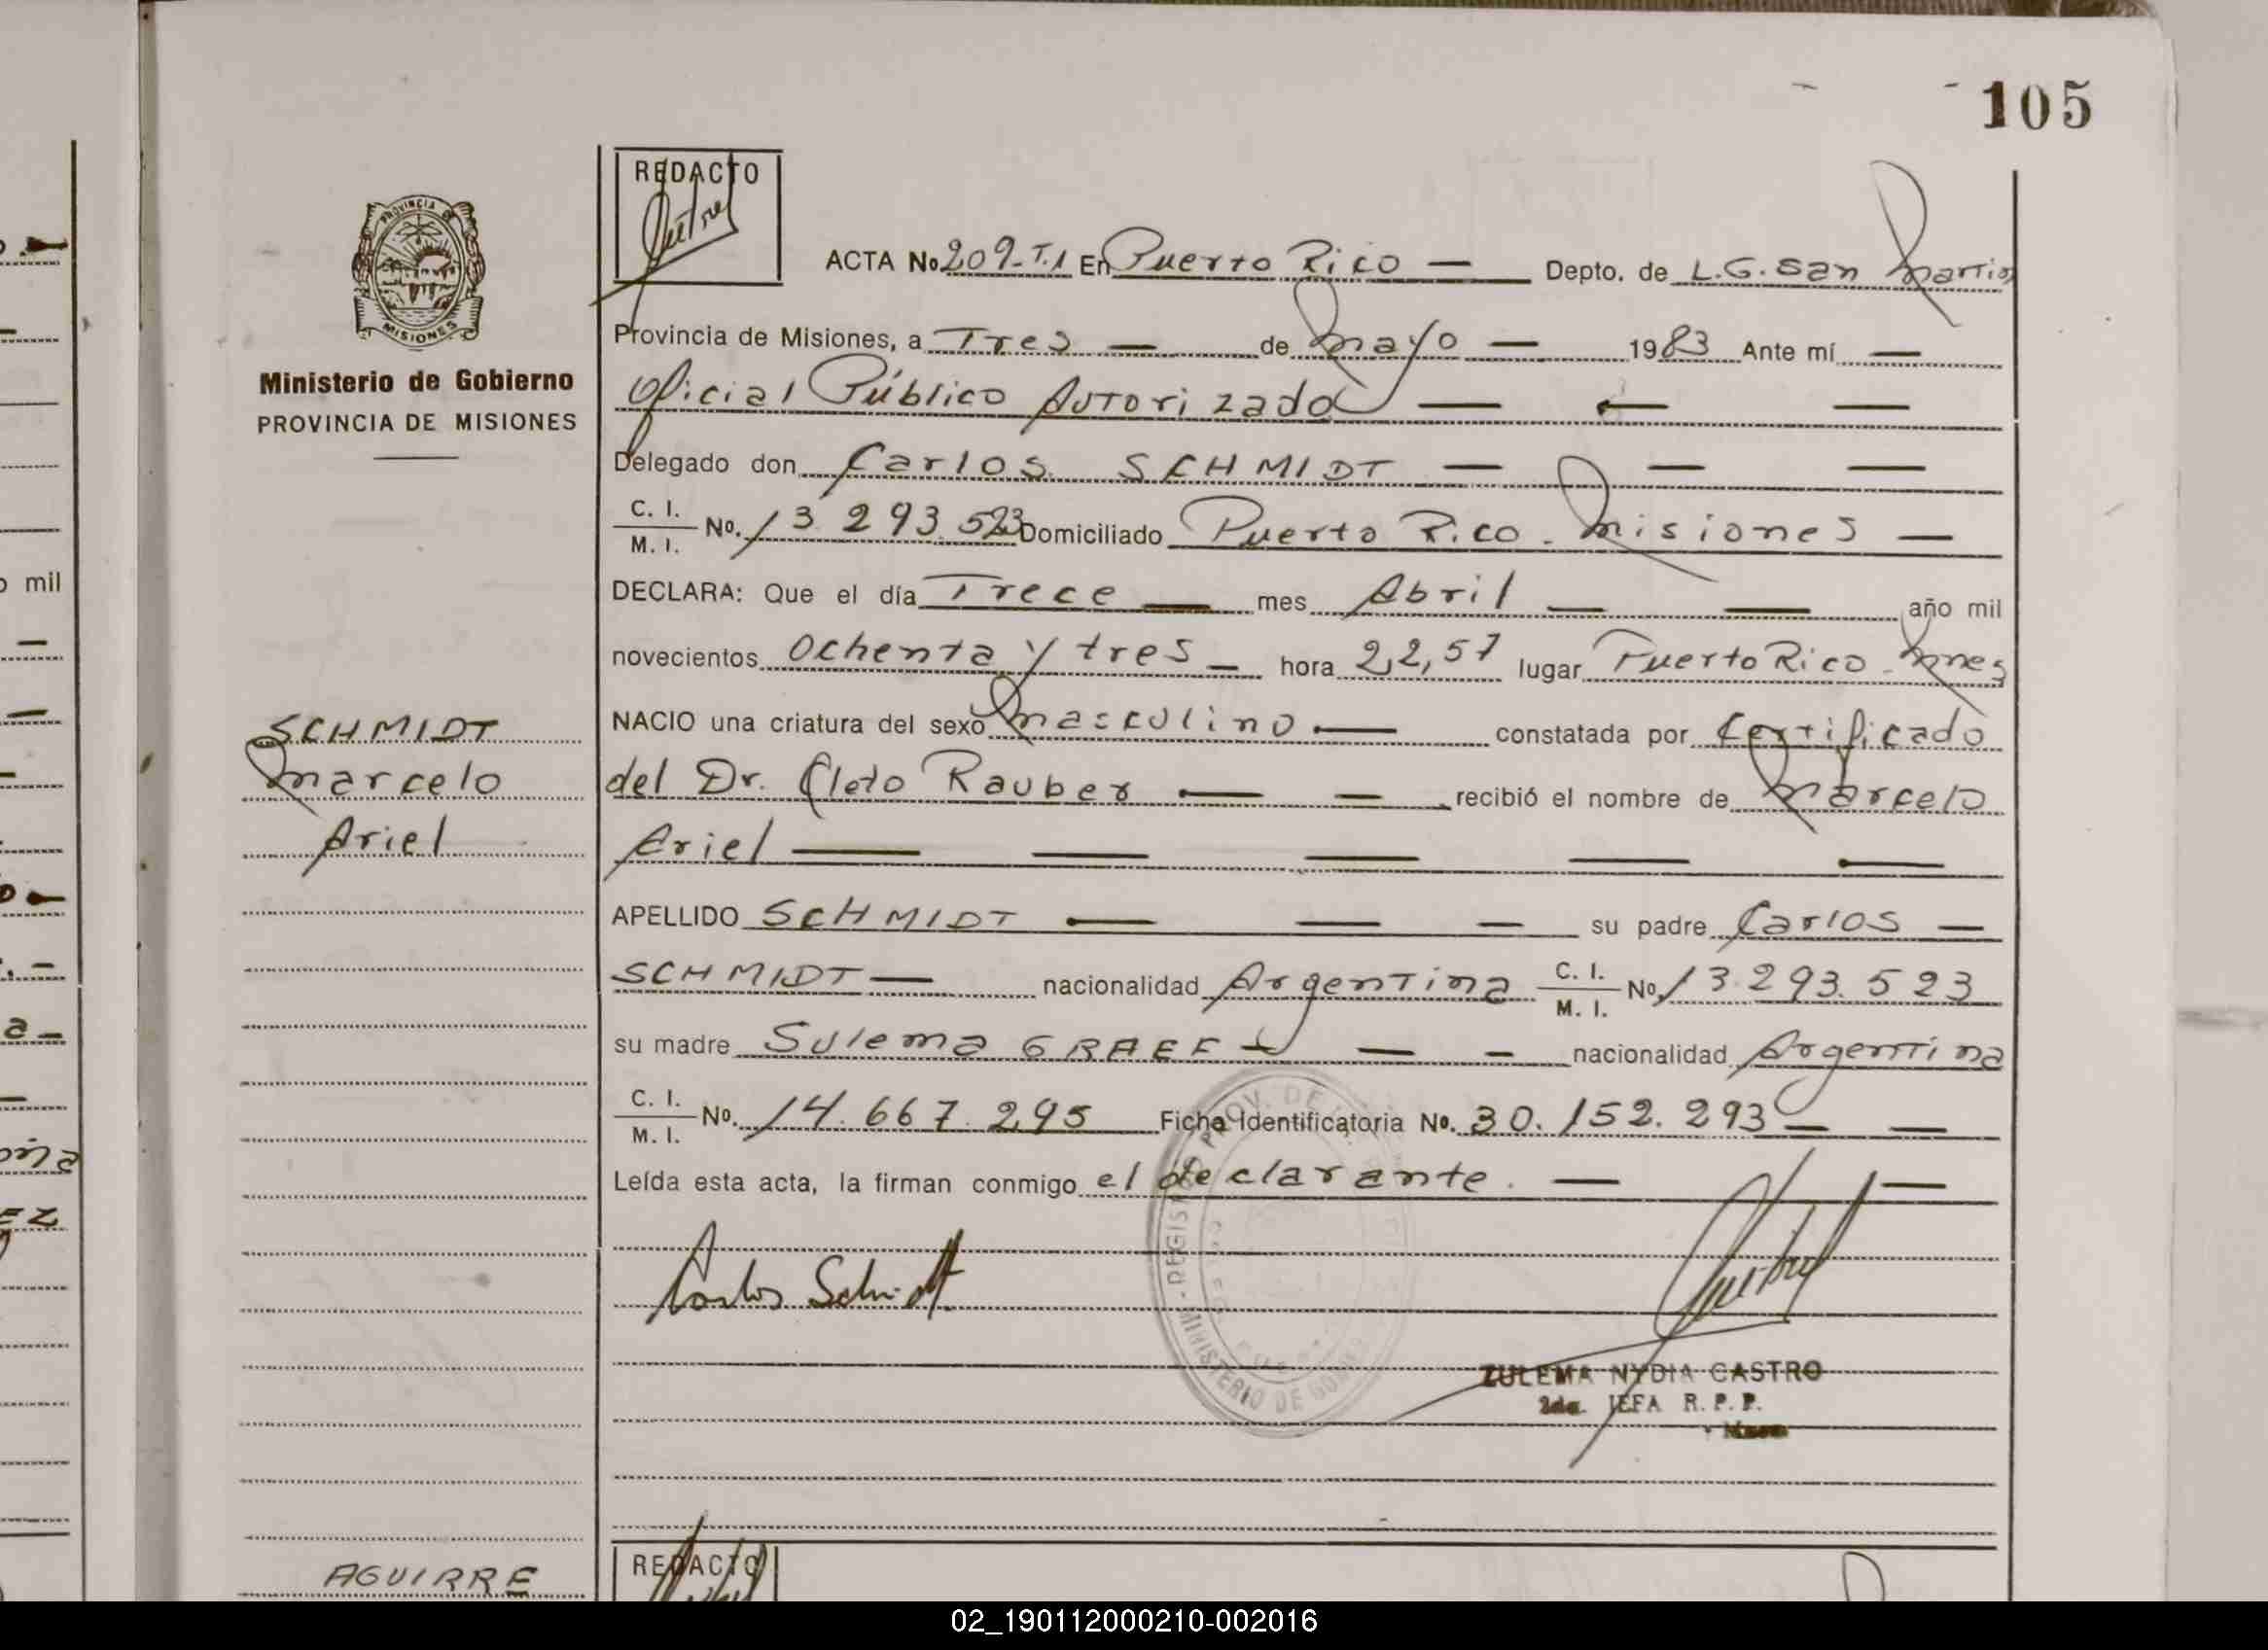 105
REDACTO
ACTA No 209-T.1 En Puerto Rico — Depto. de L.G. San Martin
Provincia de Misiones, a Tres — de Mayo — 1983 Ante mí —
Oficial Público Autorizado — — —
Delegado don Carlos SCHMIDT — — —
C. I.
M. I. Nº. 13.293.523 Domiciliado Puerto Rico - Misiones —
DECLARA: Que el día Trece — mes Abril — — año mil
novecientos Ochenta y tres — hora 22,57 lugar Puerto Rico - Mnes
NACIO una criatura del sexo Masculino — constatada por Certificado
del Dr. Cleto Rauber — — recibió el nombre de Marcelo
Ariel — — — — —
APELLIDO SCHMIDT — — — su padre Carlos —
SCHMIDT — nacionalidad Argentina C. I.
M. I. Nº 13.293.523
su madre Sulema GRAEF — — — nacionalidad Argentina
C. I.
M. I. Nº. 14.667.295 Ficha Identificatoria Nº. 30.152.293 — —
Leída esta acta, la firman conmigo el declarante. — —
Carlos Schmidt
ZULEMA NYDIA CASTRO
2da. JEFA R. P. P.
PROVINCIA DE
MISIONES
Ministerio de Gobierno
PROVINCIA DE MISIONES
SCHMIDT
Marcelo
Ariel
MINISTERIO DE
AGUIRRE
REDACTO
o mil
EZ
02_190112000210-002016